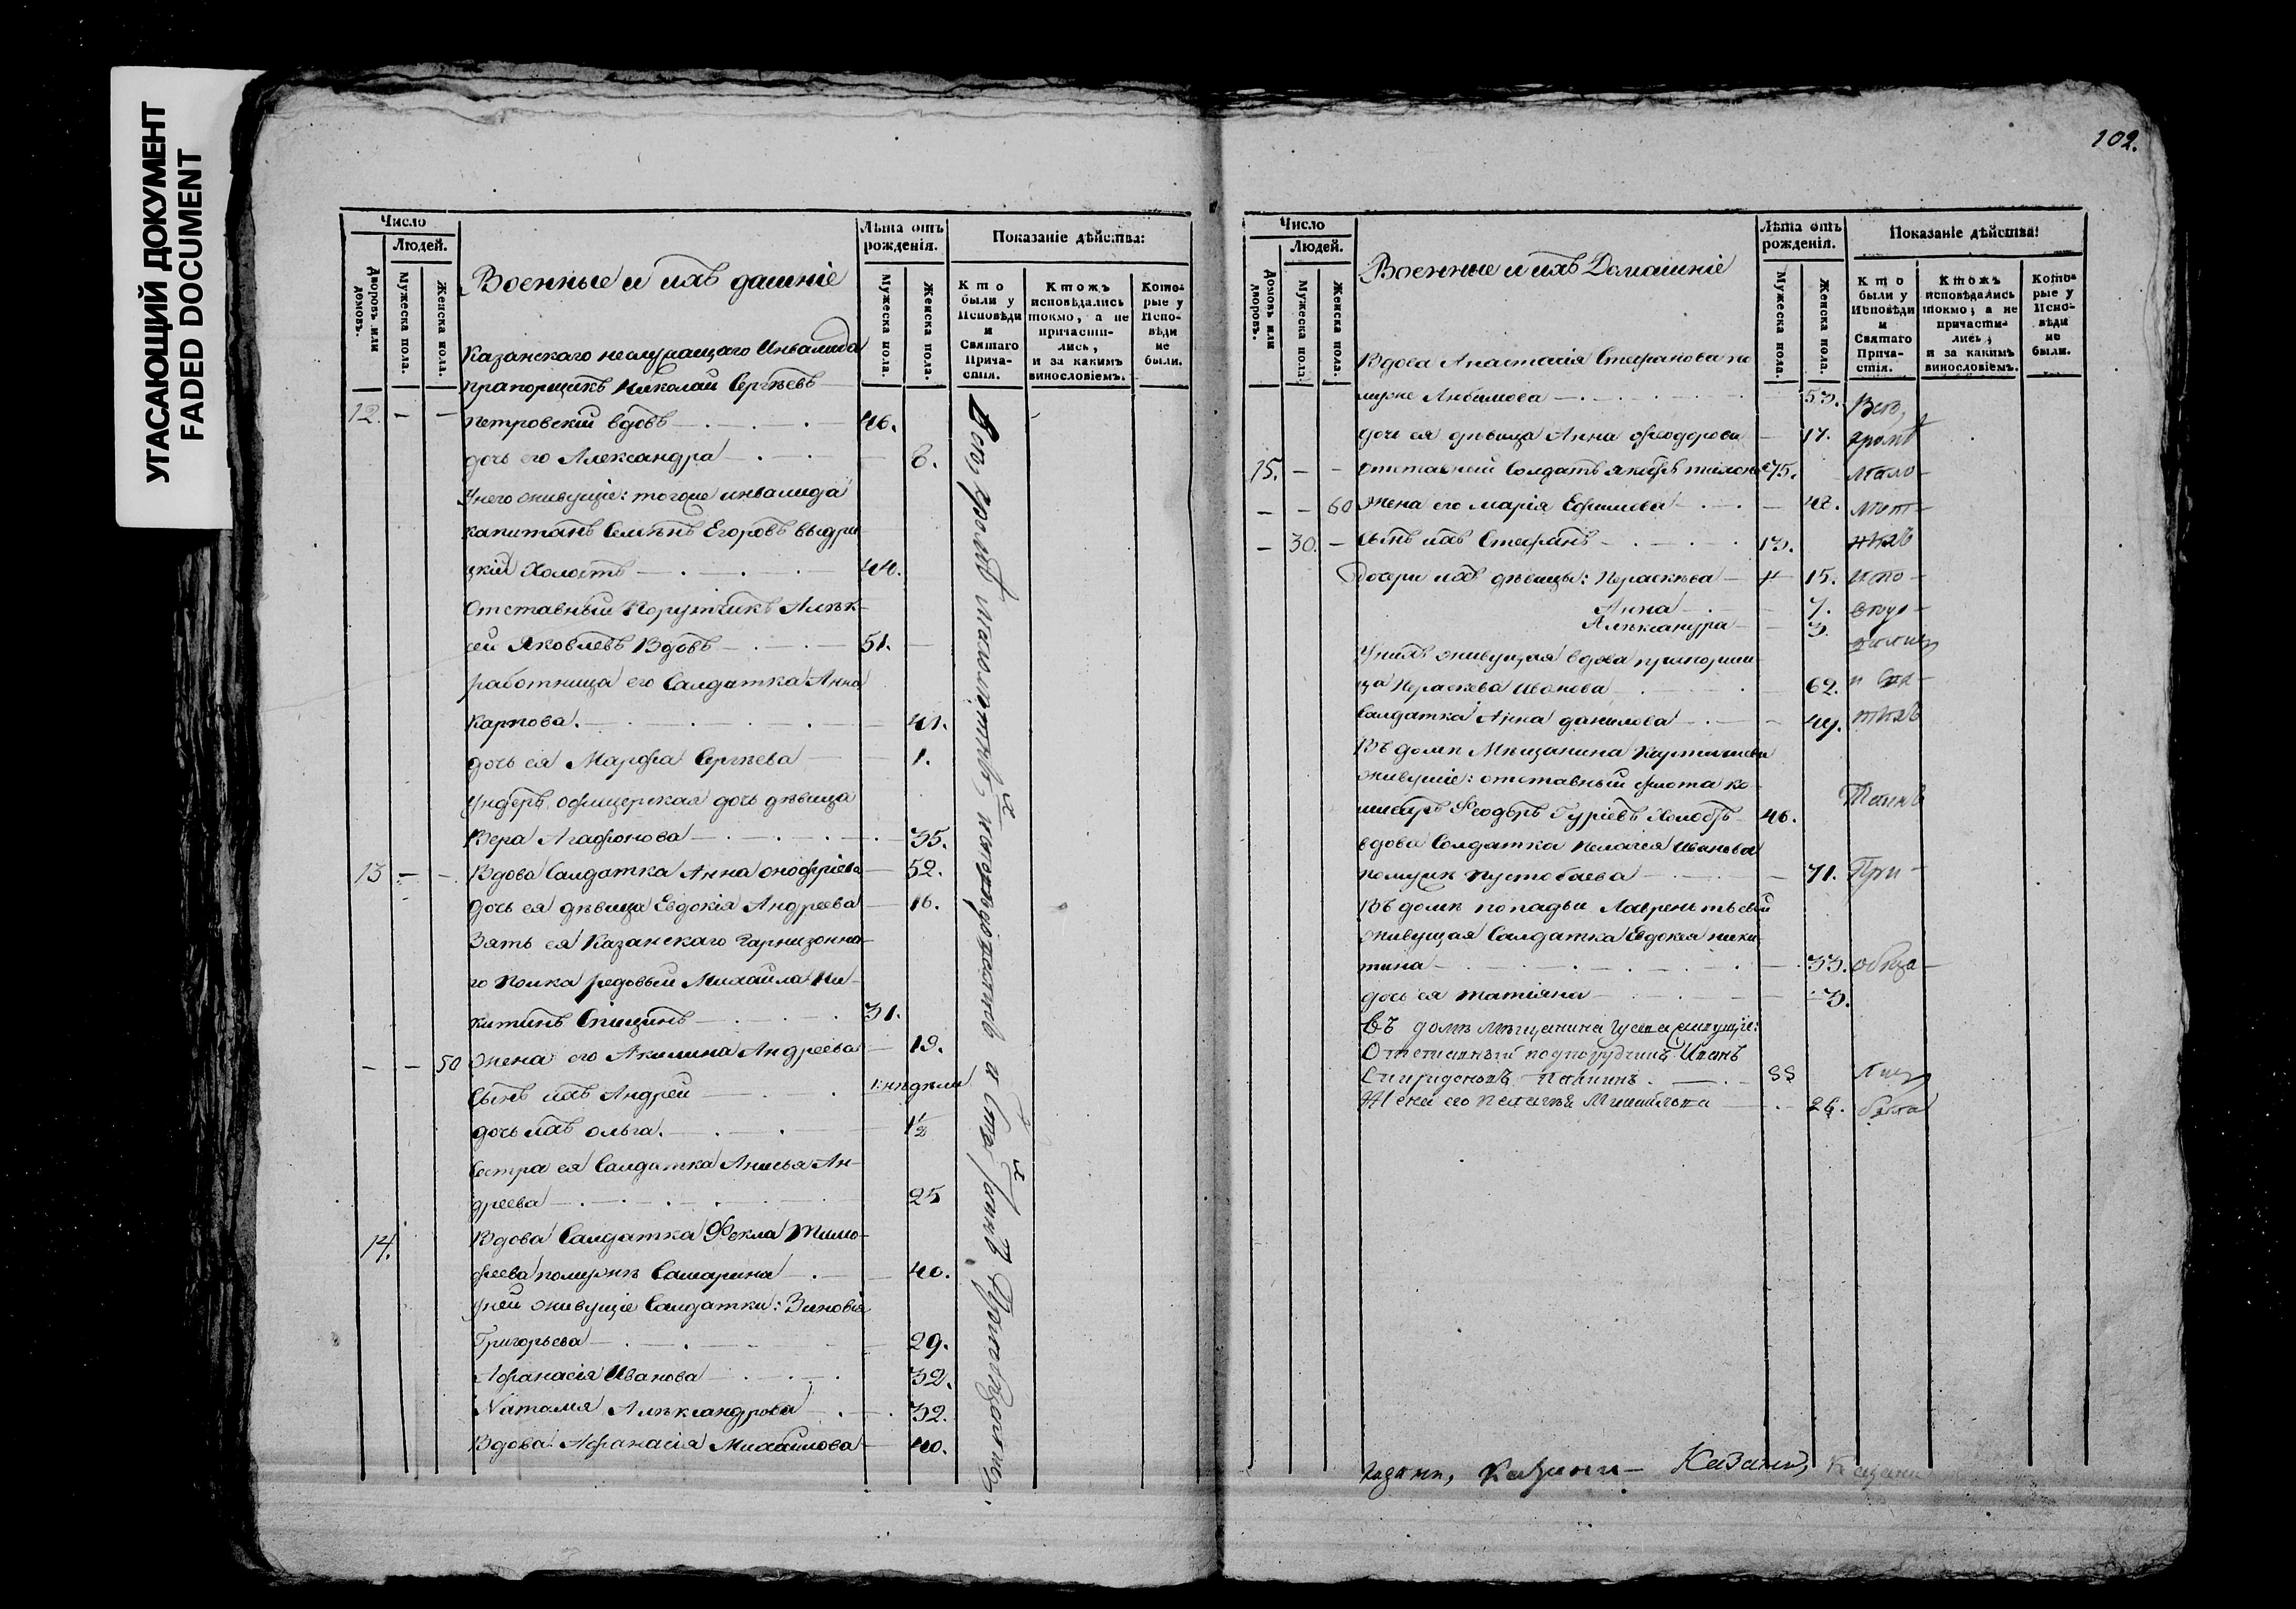 УГАСАЮЩИЙ ДОКУМЕНТ
FADED DOCUMENT
Число
Людей.
Дворовъ или домовъ.
Мужеска пола.
Женска пола.
Военные и ихъ дашніе
Лѣта отъ рожденія.
Мужеска пола.
Женска пола.
Показаніе дѣйства:
Кто были у Исповѣди и Святаго Прича-стія.
Ктожъ исповѣдались токмо, а не причасти-лись, и за какимъ винословіемъ.
Кото-рые у Испо-вѣди не были.
Казанскаго неслужащаго Инвалида
прапорщикъ Николай Сергѣевъ
12. — — Петровскій вдовъ — 46.
дочь его Александра — 8.
У него живущіе: тогоже инвалида
капитанъ Семенъ Егоровъ
цкій Холостъ — 44.
Отставный Порутчикъ Алек-
сей Яковлевъ Вдовъ — 51.
работница его Салдатка Анна
Карпова. — 41.
дочь ея Марфа Сергѣева — 1.
Ундеръ офицерская дочь дѣвица
Вера Агафонова — 35.
13 — — Вдова Салдатка Анна Онофріева — 52.
дочь ея дѣвица Евдокія Андреева — 16.
Зять ея Казанскаго Гарнизонна-
го Полка редовый Михайла Ни-
китинъ Спицинъ — 31.
— — 50 Жена его Акилина Андреева — 19.
Сынъ ихъ Андрей — 1 недѣли
дочь ихъ Ольга. — 1½
Сестра ея Салдатка Анисья Ан-
дреева — 25
14. Вдова Салдатка Фекла Тимо-
феева помужѣ Самарина — 40.
У ней живущіе Салдатки: Зиновія
Григорьева — 29.
Афанасія Иванова — 32.
Наталія Александрова — 32.
Вдова Афанасія Михайлова — 40.
Всѣ, кромѣ малолѣтныхъ, исповѣдались и Стыхъ Таинъ Пріобщались.
102.
Число
Людей.
Домовъ или дворовъ.
Мужеска пола.
Женска пола.
Военные и ихъ Домашніе
Лѣта отъ рожденія.
Мужеска пола.
Женска пола.
Показаніе дѣйства:
Кто были у Исповѣди и Святаго Прича-стія.
Ктожъ исповѣдались токмо, а не причасти-лись, и за какимъ винословіемъ.
Кото-рые у Испо-вѣди не были.
Вдова Анастасія Стефанова по
мужѣ Любимова — 53. Всѣ,
дочь ея дѣвица Анна Феодорова — 17. кромѣ
15. — — Отставный Солдатъ Яковъ 75. мало-
— — 60 Жена его Марія Ефимова — 48. лѣт-
— 30. — Сынъ ихъ Стефанъ — 13. ныхъ
Дочери ихъ дѣвицы: Параскѣва — 15. испо-
Анна — 7.
Александра — 3.
У нихъ живущая вдова прапорщи-
ца Параскева Иванова — 62. и Св-
Салдатка Анна Данилова — 49. тыхъ
Въ домѣ Мѣщанина
живущіе: отставный флота ко-
Феодоръ Гуріевъ Холостъ 46. Таинъ
вдова Солдатка Пелагея Иванова
помужѣ Пустобаева — 71. При-
Въ домѣ попадьи Лаврентьевой
живущая Салдатка Евдокея Ники-
тина — 33. обща-
дочь ея Татіяна — 3.
Въ домѣ Мѣщанина Гусева живущіе:
Отставный подпорутчикъ Иванъ
Спиридоновъ — 55
Жена его Михайлова — 26.
Казани, Казани — Казани, Казани